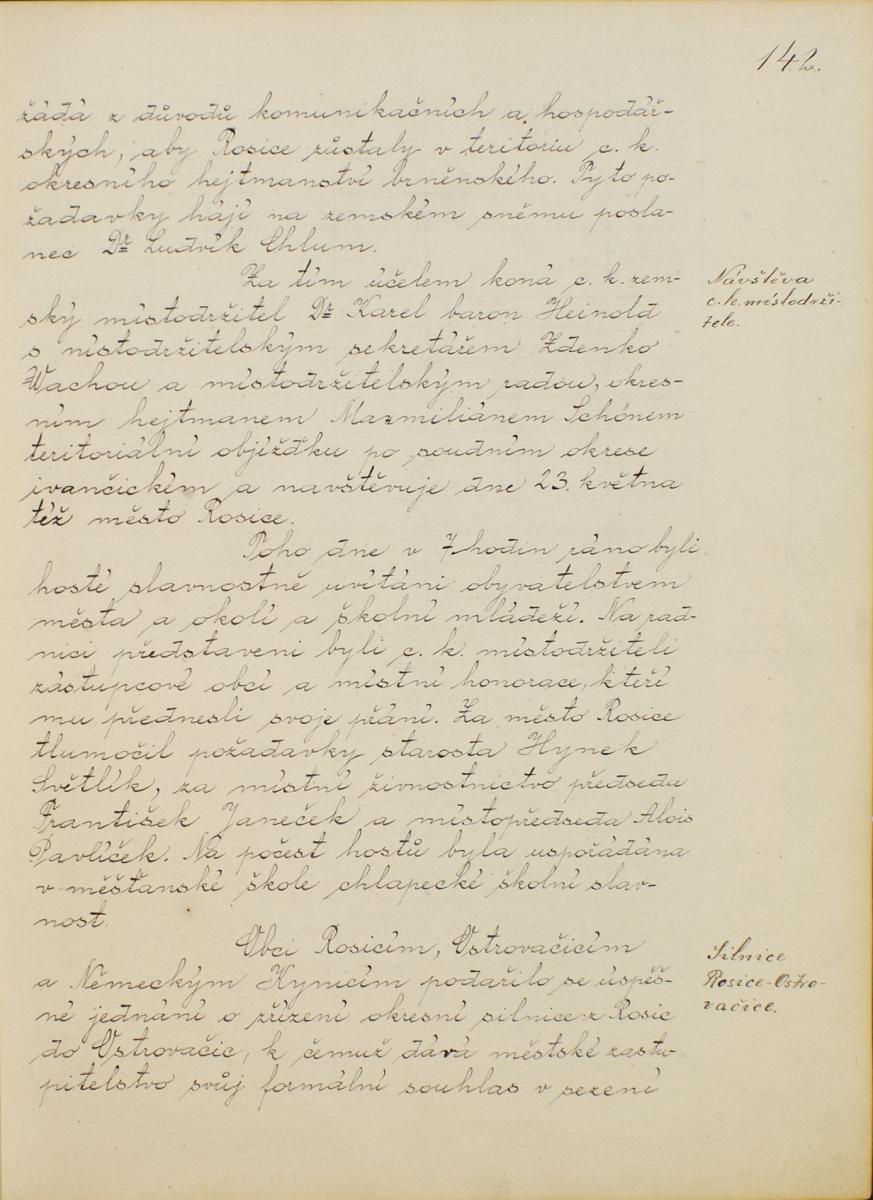 142.
žádá z důvodů komunikačních a hospodář-
ských, aby Rosice zůstaly v teritoriu c. k.
okresního hejtmanství brněnského. Tyto po-
žadavky hájí na zemském sněmu posla-
nec Dr Ludvík Chlum.
Za tím účelem koná c. k. zem-
ský místodržitel Dr Karel baron Heinold
s místodržitelským sekretářem Zdenko
Wachou a místodržitelským radou, okres-
ním hejtmanem Maxmiliánem Schönem
teritoriální objížďku po soudním okrese
ivančickém a navštěvuje dne 23. května
též město Rosice.
Návštěva
c. k. místodrži-
tele.
Toho dne v 7 hodin ráno byli
hosté slavnostně uvítáni obyvatelstvem
města a okolí a školní mládeží. Na rad-
nici představeni byli c. k. místodržiteli
zástupcové obcí a místní honorace, kteří
mu přednesli svoje přání. Za město Rosice
tlumočil požadavky starosta Hynek
Světlík, za místní živnostnictvo předseda
František Janeček a místopředseda Alois
Pavlíček. Na počest hostů byla uspořádána
v měšťanské škole chlapecké školní slav-
nost.
Obci Rosicím, Ostrovačicím
a Německým Kynicím podařilo se úspěš-
né jednání o zřízení okresní silnice z Rosic
do Ostrovačic, k čemuž dává městské zastu-
pitelstvo svůj formální souhlas v sezení
Silnice
Rosice-Ostro-
vačice.